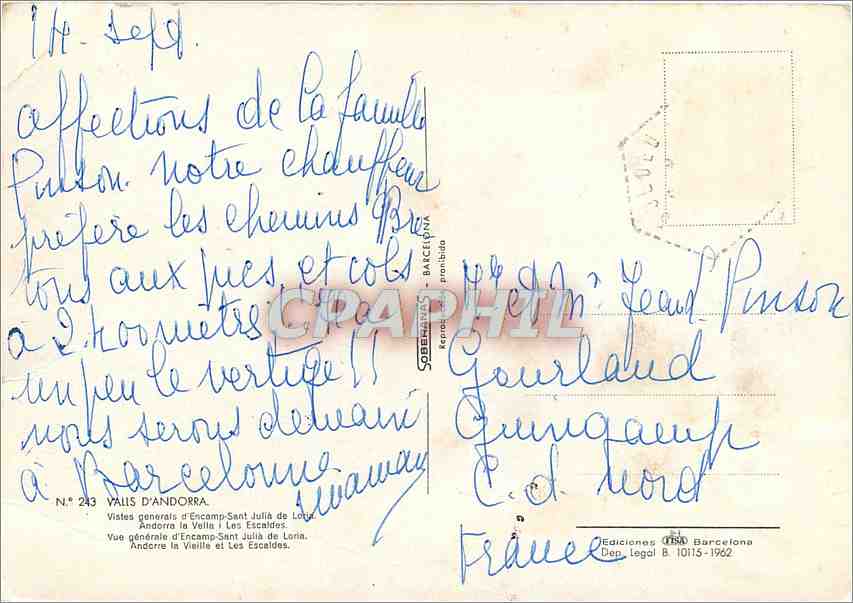 14 - Sept.
affections de la famille
Pinson. Notre chauffeur
préfère les chemins Bre
tons aux pics et cols
à 2400 mètres, il a
un peu le vertige !!
nous serons demain
à Barcelonne
Mr et Me Jean Pinson
Gourland
Guingamp
C. d. Nord
France
N.º 243 VALLS D'ANDORRA.
Vistes generals d'Encamp-Sant Julià de Loria.
Andorra la Vella i Les Escaldes.
Vue générale d'Encamp-Sant Julià de Loria.
Andorre la Vieille et Les Escaldes.
SOBERANAS - BARCELONA
Reproducción prohibida
Ediciones FISA Barcelona
Dep. Legal B. 10115-1962
CPAPHIL